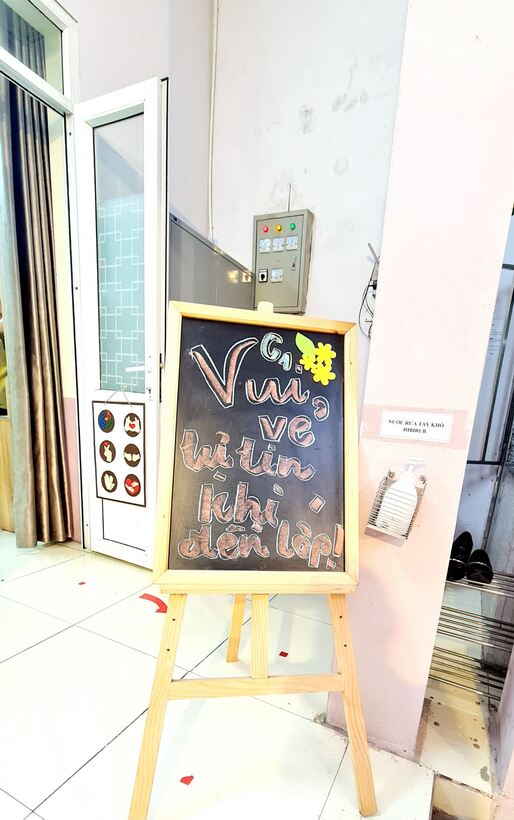 Vui
vẻ
tự tin
khi
đến lớp!
NƯỚC RỬA TAY KHÔ
HIBIRUB